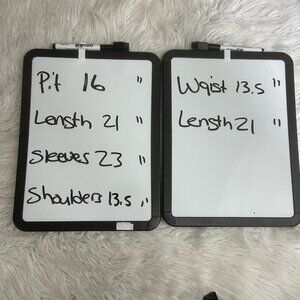 Pit 16 "
Length 21 "
Sleeves 23 "
Shoulders 13.5 "
Waist 13.5 "
Length 21 "